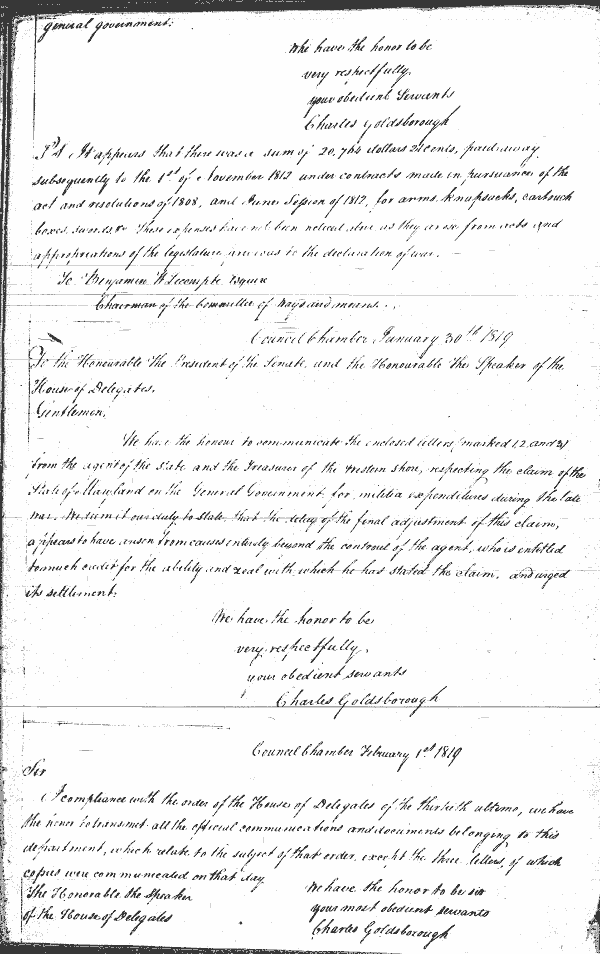 general government:
We have the honor to be
very respectfully,
your obedient Servants
Charles Goldsborough
It appears that there was a sum of 20,764 dollars cents, paid away
subsequently to the 1st of November 1812 under contracts made in pursuance of the
act and resolutions of 1808, and June Session of 1812, for arms, knapsacks, cartouch
boxes, swords &c These expenses have not been noticed above as they arose from acts and
appropriations of the legislature, previous to the declaration of war.
To Benjamin W Lecompte Esquire
Chairman of the Committee of Ways and means.
Council Chamber January 30th 1819
To the Honourable the President of the Senate, and the Honourable the Speaker of the
House of Delegates.
Gentlemen,
We have the honour to communicate the enclosed letters (marked 1, 2, and 3)
from the agent of the State and the Treasurer of the Western Shore, respecting the claim of the
State of Maryland on the General Government, for militia expenditures during the late
war. We deem it our duty to state, that the delay of the final adjustment of this claim,
appears to have arisen from causes entirely beyond the controul of the agent, who is entitled
to much credit for the ability and zeal with which he has stated the claim, and urged
its settlement.
We have the honor to be
very respectfully,
your obedient servants
Charles Goldsborough
Council Chamber February 1st 1819
Sir
In compliance with the order of the House of Delegates of the thirtieth ultimo, we have
the honor to transmit all the official communications and documents belonging to this
department, which relate to the subject of that order, except the three letters, of which
copies were communicated on that day
The Honorable the Speaker
of the House of Delegates
We have the honor to be sir
your most obedient servants
Charles Goldsborough